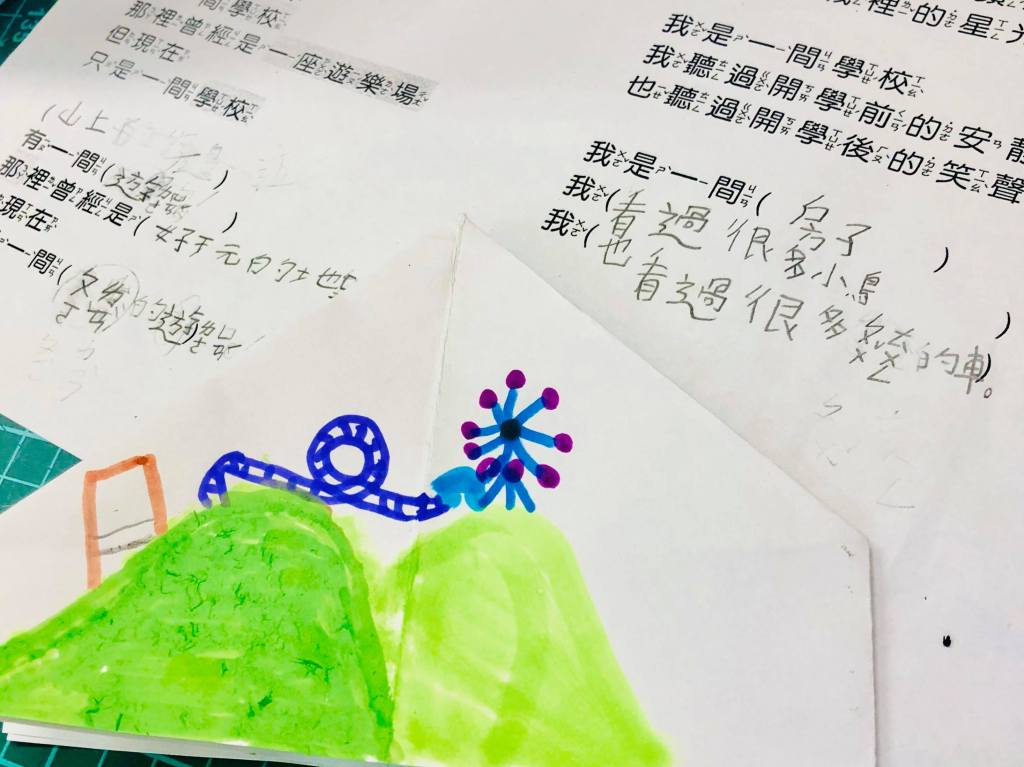 間學校
那裡曾經是一座遊樂場
但現在
只是一間學校
(山上)
有一間(遊樂器)
那裡曾經是(好玩的地
現在
一間(的遊樂器
裡的星光
我是一間學校
我聽過開學前的安靜
也聽過開學後的笑聲
我是一間(房子)
我(看過很多小鳥)
我(也看過很多的車)。